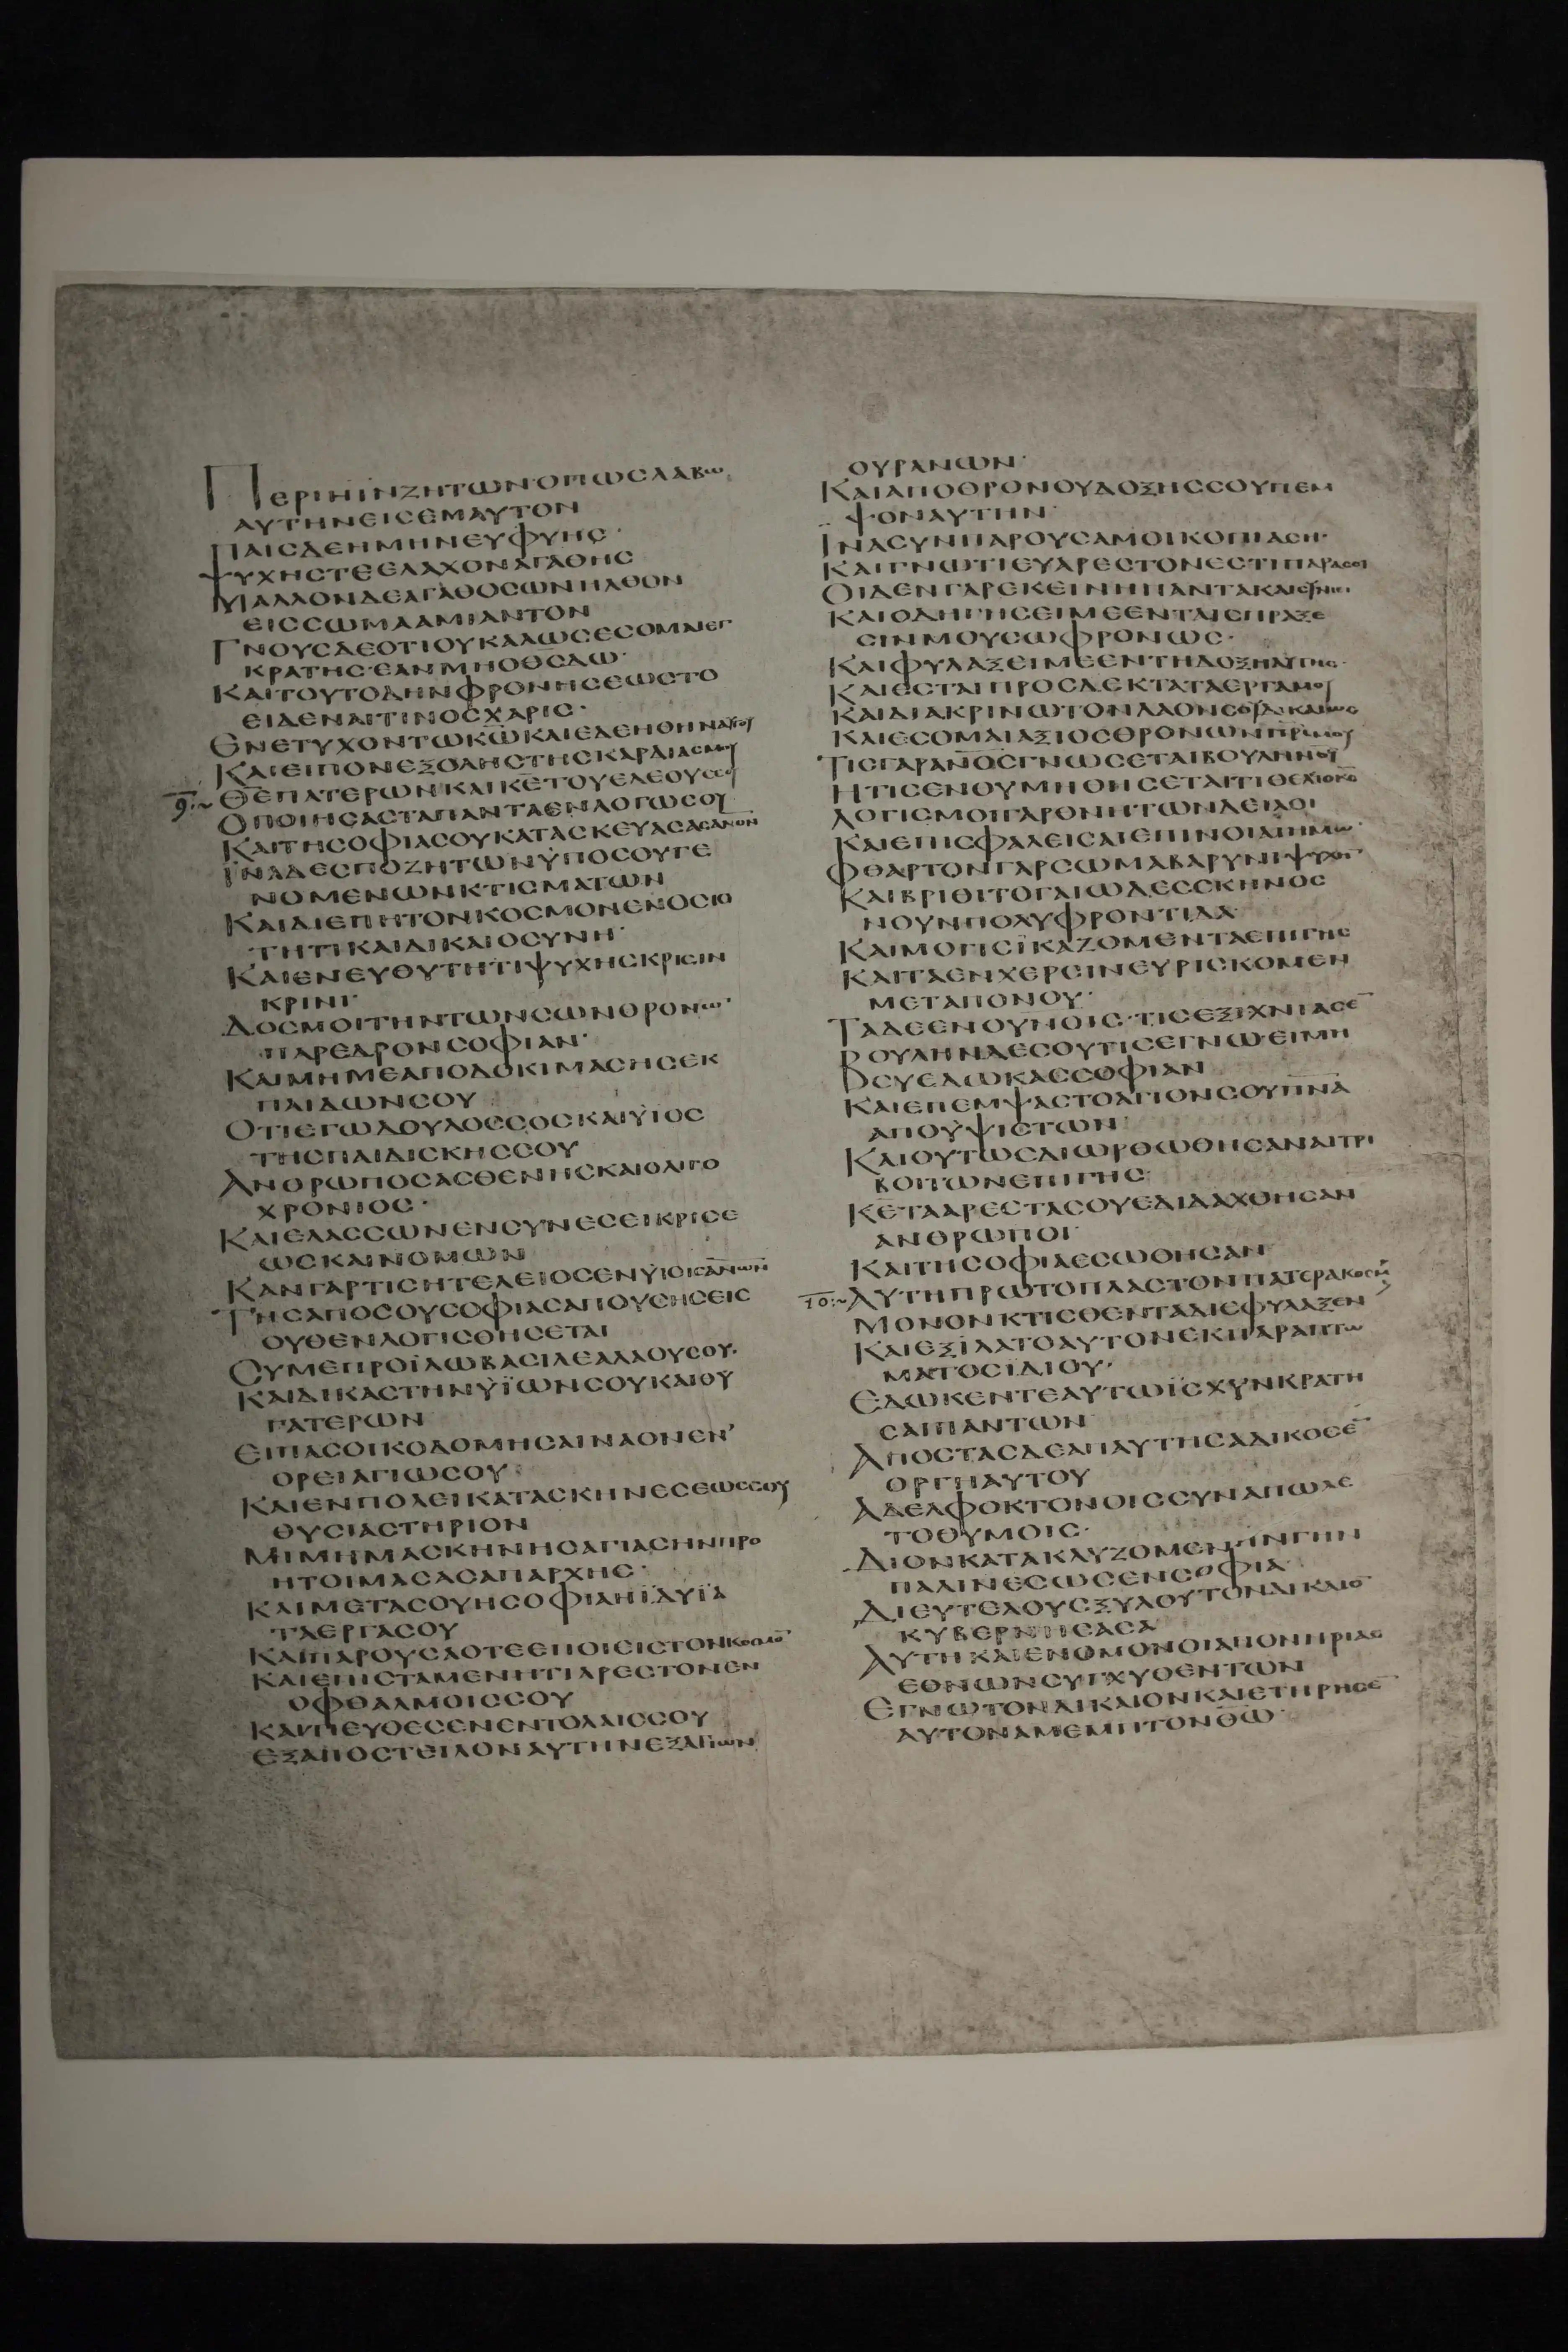 ΠΕΡΙΗΪΝΖΗΤΩΝ·ΟΠΩCΛΑΒΩ
ΑΥΤΗΝΕΙCΕΜΑΥΤΟΝ
ΠΑΙCΔΕΗΜΗΝΕΥΦΥΗC·
ΨΥΧΗCΤΕΕΛΑΧΟΝΑΓΑΘΗC
ΜΑΛΛΟΝΔΕΑΓΑΘΟCΩΝΗΛΘΟΝ
ΕΙCCΩΜΑΑΜΙΑΝΤΟΝ
ΓΝΟΥCΔΕΟΤΙΟΥΚΑΛΩCΕCΟΜΑΙΕΓ
ΚΡΑΤΗC·ΕΑΝΜΗΟΘ̅C̅ΔΩ·
ΚΑΙΤΟΥΤΟΔΗΝΦΡΟΝΗCΕΩCΤΟ
ΕΙΔΕΝΑΙΤΙΝΟCΧΑΡΙC·
ΕΝΕΤΥΧΟΝΤΩΚ̅Ω̅ΚΑΙΕΔΕΗΘΗΝΑΥΤΟΥ
ΚΑΙΕΙΠΟΝΕΞΟΛΗCΤΗCΚΑΡΔΙΑCΜΟΥ
9:~ Θ̅Ε̅ΠΑΤΕΡΩΝΚΑΙΚ̅Ε̅ΤΟΥΕΛΕΟΥCCΟΥ
ΟΠΟΙΗCΑCΤΑΠΑΝΤΑΕΝΛΟΓΩCΟΥ
ΚΑΙΤΗCΟΦΙΑCΟΥΚΑΤΑCΚΕΥΑCΑCΑΝΟΝ
ΪΝΑΔΕCΠΟΖΗΤΩΝΫΠΟCΟΥΓΕ
ΝΟΜΕΝΩΝΚΤΙCΜΑΤΩΝ
ΚΑΙΔΙΕΠΗΤΟΝΚΟCΜΟΝΕΝΟCΙΟ
ΤΗΤΙΚΑΙΔΙΚΑΙΟCΥΝΗ·
ΚΑΙΕΝΕΥΘΥΤΗΤΙΨΥΧΗCΚΡΙCΙΝ
ΚΡΙΝΙ·
ΔΟCΜΟΙΤΗΝΤΩΝCΩΝΘΡΟΝΩ̅·
ΠΑΡΕΔΡΟΝCΟΦΙΑΝ·
ΚΑΙΜΗΜΕΑΠΟΔΟΚΙΜΑCΗCΕΚ
ΠΑΙΔΩΝCΟΥ
ΟΤΙΕΓΩΔΟΥΛΟCCΟCΚΑΙΫΙΟC
ΤΗCΠΑΙΔΙCΚΗCCΟΥ
ΑΝΘΡΩΠΟCΑCΘΕΝΗCΚΑΙΟΛΙΓΟ
ΧΡΟΝΙΟC·
ΚΑΙΕΛΑCCΩΝΕΝCΥΝΕCΕΙΚΡΙCΕ
ΩCΚΑΙΝΟΜΩΝ
ΚΑΝΓΑΡΤΙCΗΤΕΛΕΙΟCΕΝΫΙΟΙCΑ̅Ν̅Ω̅Ν̅
ΤΗCΑΠΟCΟΥCΟΦΙΑCΑΠΟΥCΗCΕΙC
ΟΥΘΕΝΛΟΓΙCΘΗCΕΤΑΙ
CΥΜΕΠΡΟΪΛΩΒΑCΙΛΕΑΛΑΟΥCΟΥ·
ΚΑΙΔΙΚΑCΤΗΝΫΪΩΝCΟΥΚΑΙΟΥ
ΓΑΤΕΡΩΝ
ΕΙΠΑCΟΙΚΟΔΟΜΗCΑΙΝΑΟΝΕΝ
ΟΡΕΙΑΓΙΩCΟΥ·
ΚΑΙΕΝΠΟΛΕΙΚΑΤΑCΚΗΝΕCΕΩCCΟΥ
ΘΥCΙΑCΤΗΡΙΟΝ
ΜΙΜΗΜΑCΚΗΝΗCΑΓΙΑCΗΝΠΡΟ
ΗΤΟΙΜΑCΑCΑΠΑΡΧΗC·
ΚΑΙΜΕΤΑCΟΥΗCΟΦΙΑΗΪΔΥΪΑ
ΤΑΕΡΓΑCΟΥ
ΚΑΙΠΑΡΟΥCΑΟΤΕΕΠΟΙCΙCΤΟΝΚΟCΜΟ̅
ΚΑΙΕΠΙCΤΑΜΕΝΗΤΙΑΡΕCΤΟΝΕΝ
ΟΦΘΑΛΜΟΙCCΟΥ
ΚΑΙΤΙΕΥΘΕCΕΝΕΝΤΟΛΑΙCCΟΥ
ΕΞΑΠΟCΤΕΙΛΟΝΑΥΤΗΝΕΞΑΓΙΩΝ
ΟΥΡΑΝΩΝ·
ΚΑΙΑΠΟΘΡΟΝΟΥΔΟΞΗCCΟΥΠΕΜ
ΨΟΝΑΥΤΗΝ·
ΙΝΑCΥΝΠΑΡΟΥCΑΜΟΙΚΟΠΙΑCΗ·
ΚΑΙΓΝΩΤΙΕΥΑΡΕCΤΟΝΕCΤΙΠΑΡΑCΟΙ
ΟΙΔΕΝΓΑΡΕΚΕΙΝΗΠΑΝΤΑΚΑΙCΥΝΙΕΙ
ΚΑΙΟΔΗΓΗCΕΙΜΕΕΝΤΑΙCΠΡΑΞΕ
CΙΝΜΟΥCΩΦΡΟΝΩC·
ΚΑΙΦΥΛΑΞΕΙΜΕΕΝΤΗΔΟΞΗΑΥΤΗC·
ΚΑΙΕCΤΑΙΠΡΟCΔΕΚΤΑΤΑΕΡΓΑΜΟΥ
ΚΑΙΔΙΑΚΡΙΝΩΤΟΝΛΑΟΝCΟΥΔΙΚΑΙΩC
ΚΑΙΕCΟΜΑΙΑΞΙΟCΘΡΟΝΩΝΠ̅Ρ̅C̅ΜΟΥ
ΤΙCΓΑΡΑ̅Ν̅Ο̅C̅ΓΝΩCΕΤΑΙΒΟΥΛΗΝΘ̅Υ̅
ΗΤΙCΕΝΟΥΜΗΘΗCΕΤΑΙΤΙΘΕΛΙΟΚ̅C̅
ΛΟΓΙCΜΟΙΓΑΡΘΝΗΤΩΝΔΕΙΛΟΙ
ΚΑΙΕΠΙCΦΑΛΕΙCΑΙΕΠΙΝΟΙΑΙΗΜΩ̅
ΦΘΑΡΤΟΝΓΑΡCΩΜΑΒΑΡΥΝΙΨΥΧΗ̅
ΚΑΙΒΡΙΘΙΤΟΓΑΙΩΔΕCCΚΗΝΟC
ΝΟΥΝΠΟΛΥΦΡΟΝΤΙΔΑ
ΚΑΙΜΟΓΙCΪΚΑΖΟΜΕΝΤΑΕΠΙΓΗC
ΚΑΙΤΑΕΝΧΕΡCΙΝΕΥΡΙCΚΟΜΕΝ
ΜΕΤΑΠΟΝΟΥ·
ΤΑΔΕΕΝΟΥΝΟΙC·ΤΙCΕΞΙΧΝΙΑCΕ̅
ΒΟΥΛΗΝΔΕCΟΥΤΙCΕΓΝΩ·ΕΙΜΗ
CΥΕΔΩΚΑCCΟΦΙΑΝ
ΚΑΙΕΠΕΜΨΑCΤΟΑΓΙΟΝCΟΥΠ̅Ν̅Α̅
ΑΠΟΥΨΙCΤΩΝ
ΚΑΙΟΥΤΩCΔΙΩΡΘΩΘΗCΑΝΑΙΤΡΙ
ΒΟΙΤΩΝΕΠΙΓΗC
ΚΕΤΑΑΡΕCΤΑCΟΥΕΔΙΔΑΧΘΗCΑΝ
ΑΝΘΡΩΠΟΙ·
ΚΑΙΤΗCΟΦΙΑΕCΩΘΗCΑΝ
10:~ ΑΥΤΗΠΡΩΤΟΠΛΑCΤΟΝΠΑΤΕΡΑΚΟCΜ
ΜΟΝΟΝΚΤΙCΘΕΝΤΑΔΙΕΦΥΛΑΞΕΝ
ΚΑΙΕΞΙΛΑΤΟΑΥΤΟΝΕΚΠΑΡΑΠΤΩ
ΜΑΤΟCΪΔΙΟΥ·
ΕΔΩΚΕΝΤΕΑΥΤΩΪCΧΥΝΚΡΑΤΗ
CΑΙΠΑΝΤΩΝ
ΑΠΟCΤΑCΔΕΑΠΑΥΤΗCΑΔΙΚΟCΕ̅
ΟΡΓΗΑΥΤΟΥ
ΑΔΕΛΦΟΚΤΟΝΟΙCCΥΝΑΠΩΛΕ
ΤΟΘΥΜΟΙC·
ΔΙΟΝΚΑΤΑΚΛΥΖΟΜΕΝΗΝΓΗΝ
ΠΑΛΙΝΕCΩCΕΝCΟΦΙΑ·
ΔΙΕΥΤΕΛΟΥCΞΥΛΟΥΤΟΝΔΙΚΑΙΟ̅
ΚΥΒΕΡΝΗCΑCΑ
ΑΥΤΗΚΑΙΕΝΟΜΟΝΟΙΑΠΟΝΗΡΙΑC
ΕΘΝΩΝCΥΓΧΥΘΕΝΤΩΝ
ΕΓΝΩΤΟΝΔΙΚΑΙΟΝΚΑΙΕΤΗΡΗCΕ̅
ΑΥΤΟΝΑΜΕΜΠΤΟΝΘ̅Ω̅·